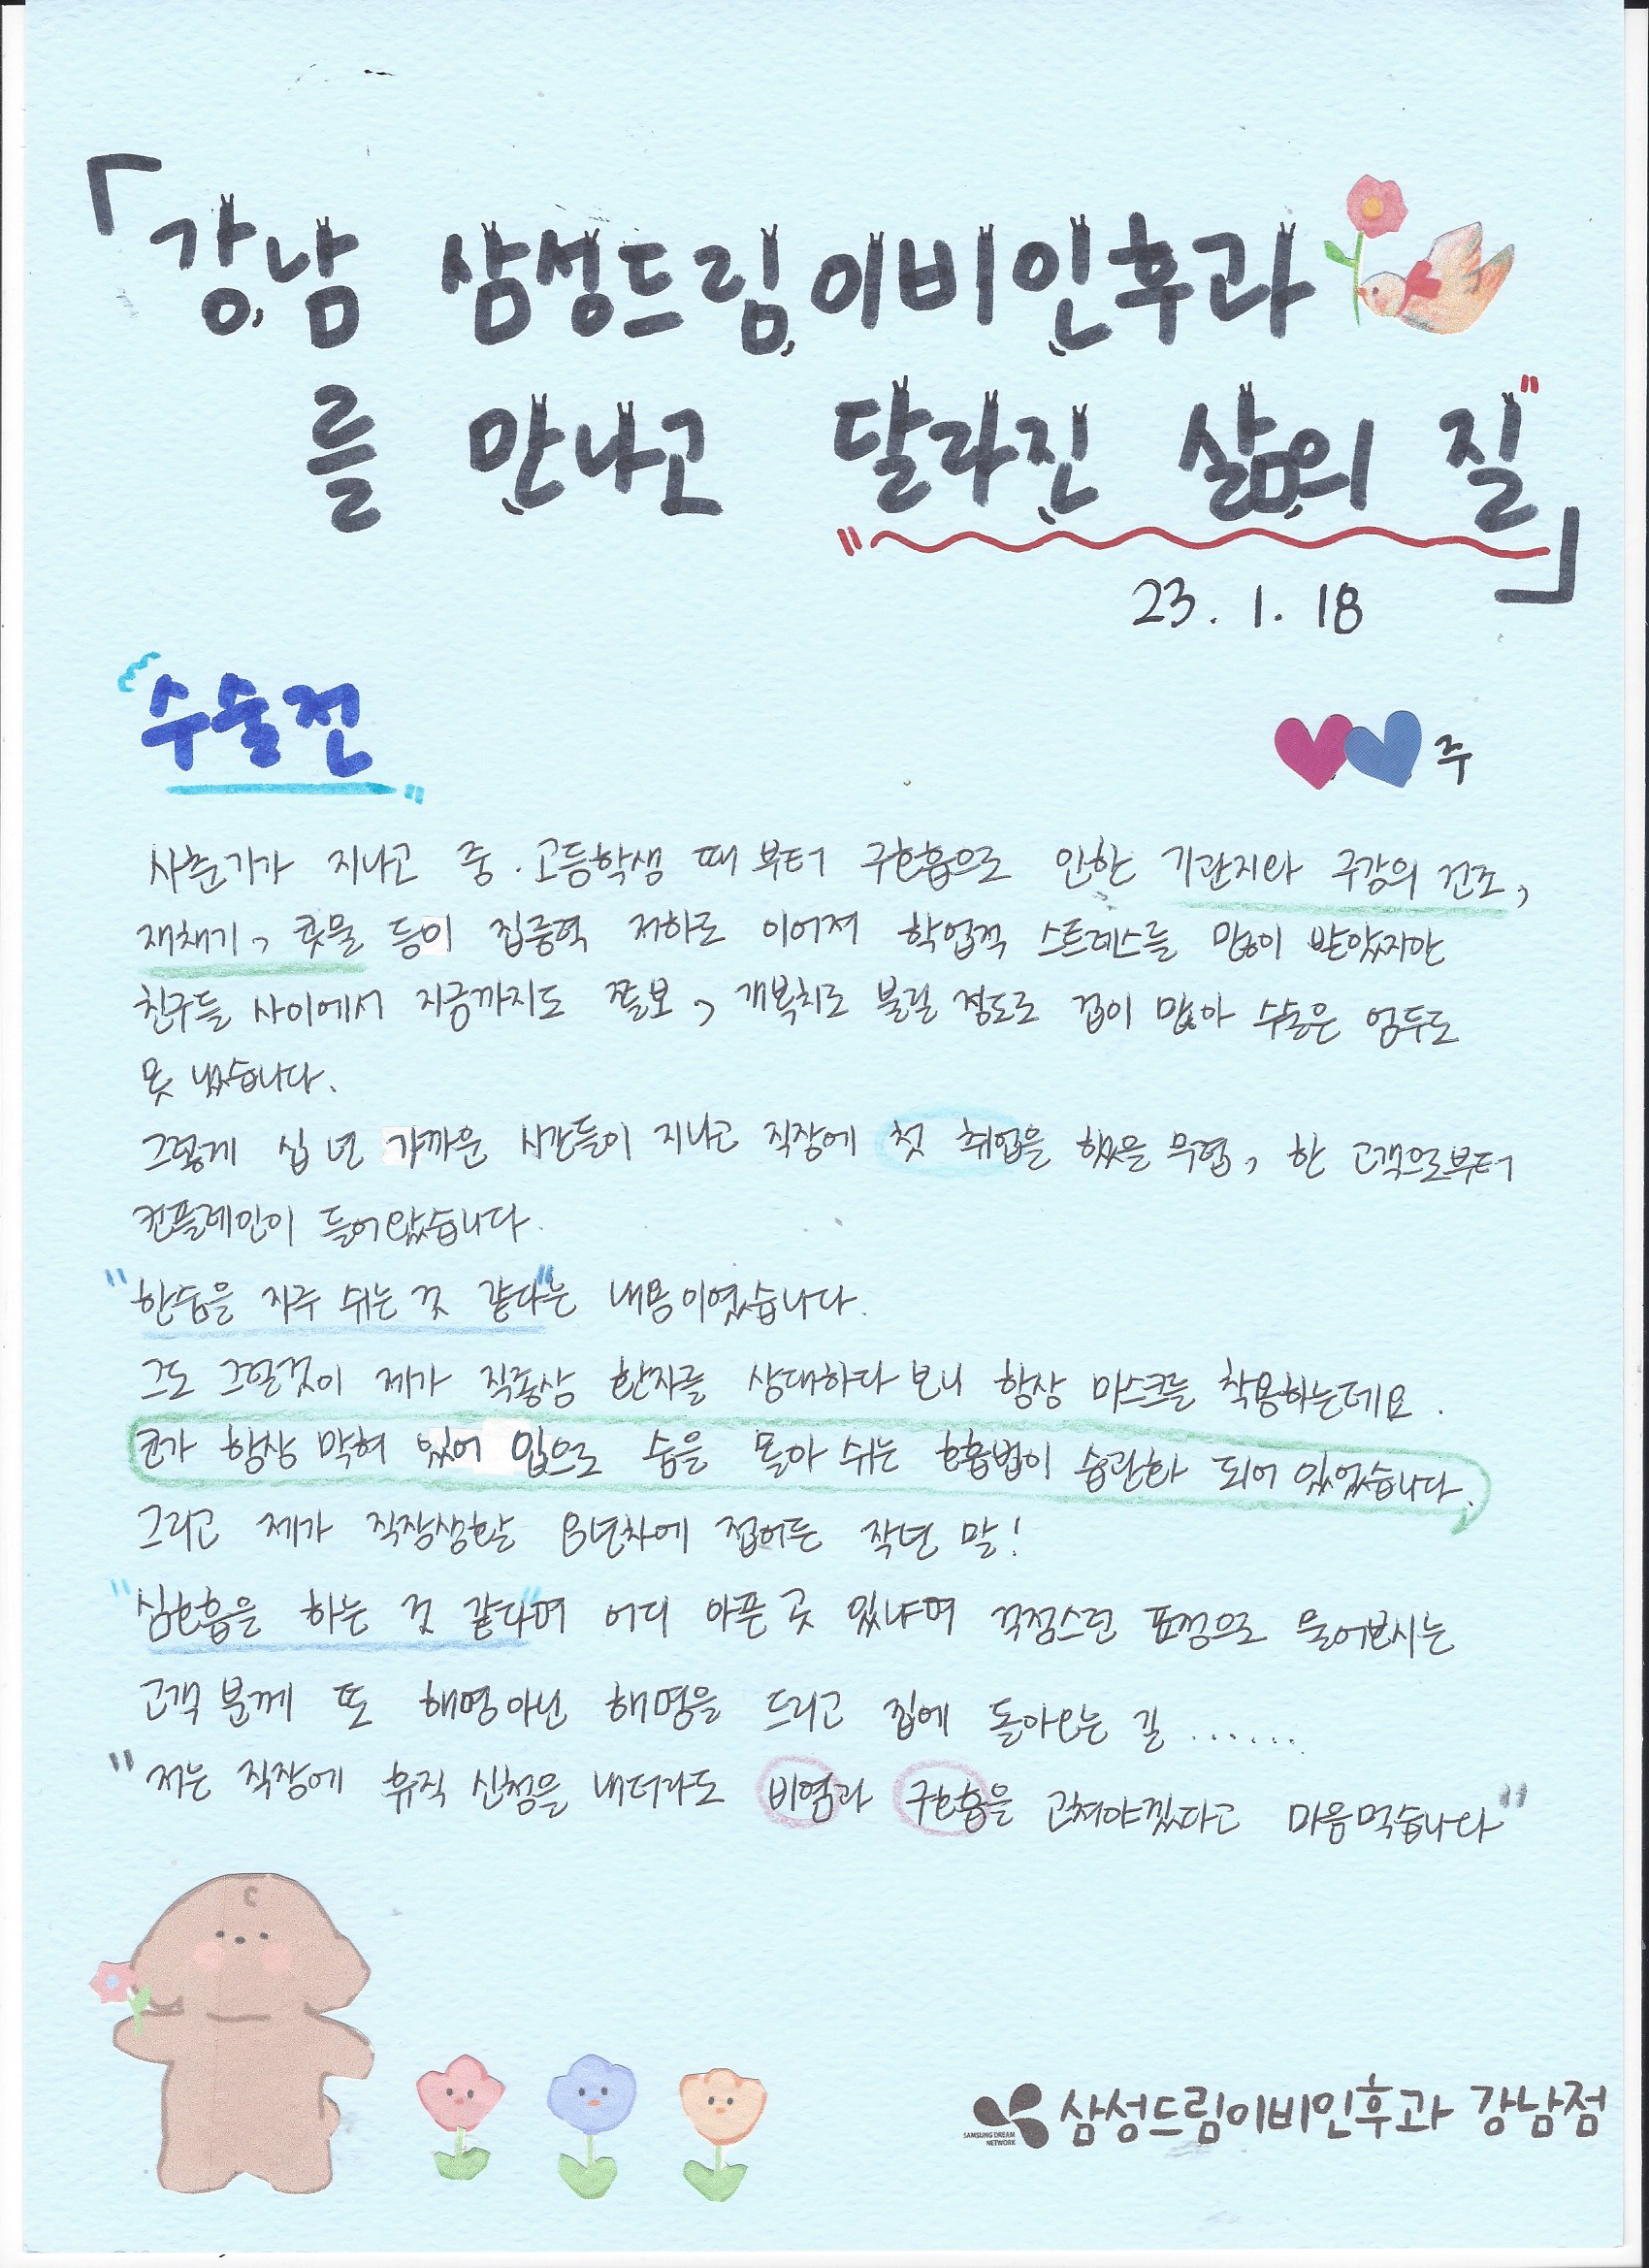 「강남 삼성드림이비인후과
를 만나고 달라진 삶의 질」
23. 1. 18
수술전
주
사춘기가 지나고 중·고등학생 때 부터 구호흡으로 인한 기관지와 구강의 건조,
재채기, 콧물 등이 집중력 저하로 이어져 학업적 스트레스를 많이 받았지만
친구들 사이에서 지금까지도 쫄보, 개복치로 불릴 정도로 겁이 많아 수술은 엄두도
못 냈습니다.
그렇게 십 년 가까운 시간들이 지나고 직장에 첫 취업을 했을 무렵, 한 고객으로부터
컨플레인이 들어왔습니다.
"한숨을 자주 쉬는 것 같다"는 내용이였습니다.
그도 그럴것이 제가 직종상 환자를 상대하다 보니 항상 마스크를 착용하는데요.
코가 항상 막혀 있어 입으로 숨을 몰아 쉬는 호흡법이 습관화 되어 있었습니다.
그리고 제가 직장생활 8년차에 접어든 작년 말!
"심호흡을 하는 것 같다"며 어디 아픈 곳 있냐며 걱정스런 표정으로 물어보시는
고객 분께 또 해명아닌 해명을 드리고 집에 돌아오는 길 ......
"저는 직장에 휴직 신청을 내더라도 비염과 구호흡을 고쳐야겠다고 마음먹습니다"
SAMSUNG DREAM
NETWORK
삼성드림이비인후과 강남점